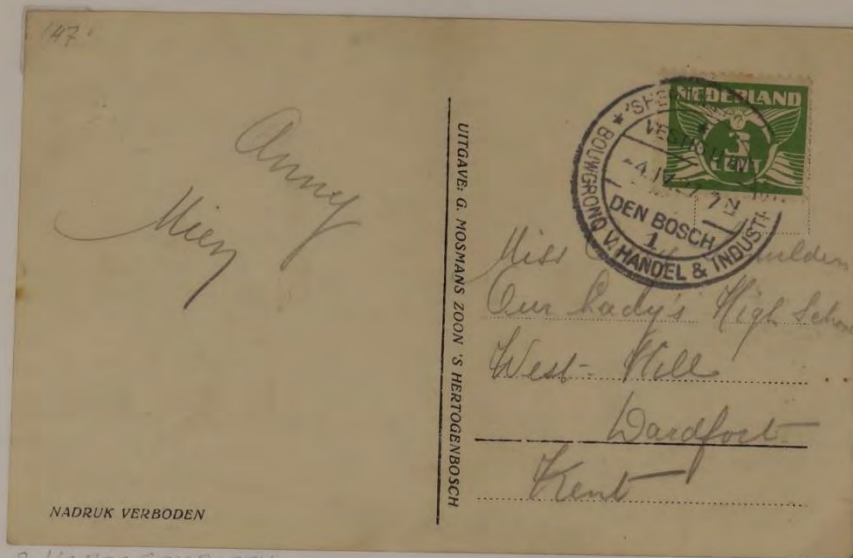 147
Anny
Mien
NADRUK VERBODEN
UITGAVE: G. MOSMANS ZOON 'S HERTOGENBOSCH
NEDERLAND
3
CENT
BOUWGROND V. HANDEL & INDUSTR
DEN BOSCH
1
Miss
Our Lady's High School
West-Hill
Dardfort
Kent